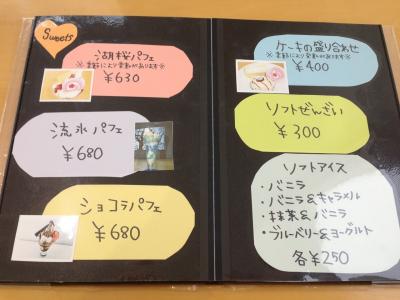 Sweets
湖桜パフェ
※季節により変動があります※
¥630
流氷パフェ
¥680
ショコラパフェ
¥680
ケーキの盛り合わせ
※季節により変動があります※
¥400
ソフトぜんざい
¥300
ソフトアイス
・バニラ
・バニラ&キャラメル
・抹茶&バニラ
・ブルーベリー&ヨーグルト
各¥250